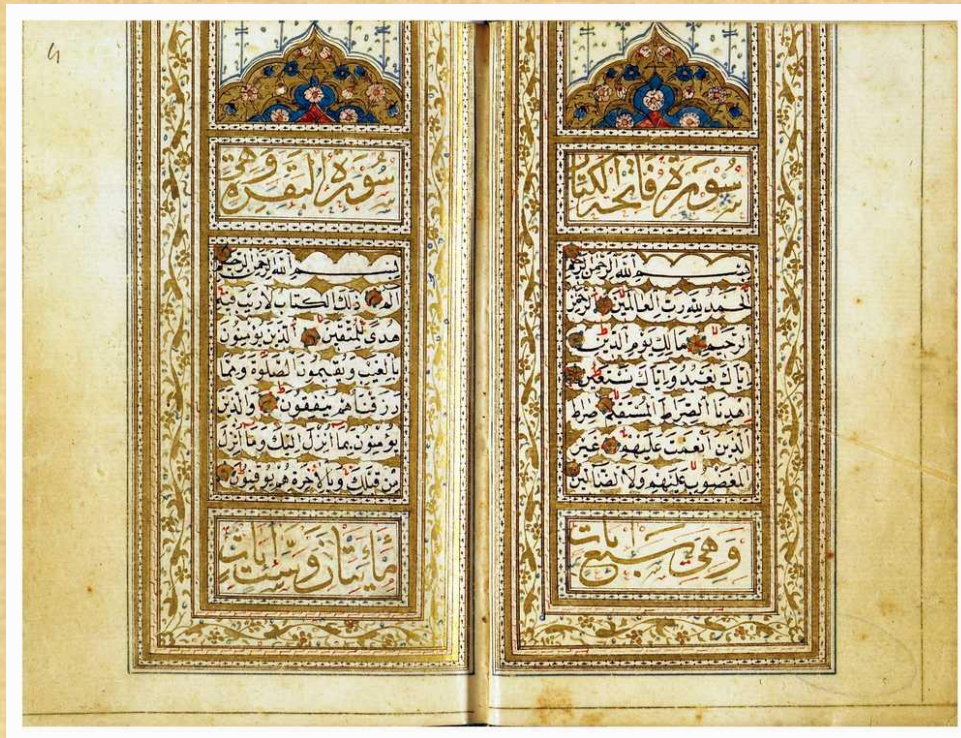 سُورَةُ فَاتِحَةِ الكِتَابِ
بِسْمِ اللهِ الرَّحْمٰنِ الرَّحِيمِ
اَلْحَمْدُ لِلّٰهِ رَبِّ الْعَالَمِينَ الرَّحْمٰنِ
الرَّحِيمِ مَالِكِ يَوْمِ الدِّينِ
اِيَّاكَ نَعْبُدُ وَاِيَّاكَ نَسْتَعِينُ
اِهْدِنَا الصِّرَاطَ الْمُسْتَقِيمَ صِرَاطَ
الَّذِينَ اَنْعَمْتَ عَلَيْهِمْ غَيْرِ
الْمَغْضُوبِ عَلَيْهِمْ وَلَا الضَّالِّينَ
وَهِيَ سَبْعُ اٰيَاتٍ
سُورَةُ الْبَقَرَةِ وَهِيَ
بِسْمِ اللهِ الرَّحْمٰنِ الرَّحِيمِ
الٓمٓ ذٰلِكَ الْكِتَابُ لَا رَيْبَ فِيهِ
هُدًى لِلْمُتَّقِينَ اَلَّذِينَ يُؤْمِنُونَ
بِالْغَيْبِ وَيُقِيمُونَ الصَّلٰوةَ وَمِمَّا
رَزَقْنَاهُمْ يُنْفِقُونَ وَالَّذِينَ
يُؤْمِنُونَ بِمَا اُنْزِلَ اِلَيْكَ وَمَا اُنْزِلَ
مِنْ قَبْلِكَ وَبِالْاٰخِرَةِ هُمْ يُوقِنُونَ
مِائَتَانِ وَسِتُّ اٰيَاتٍ